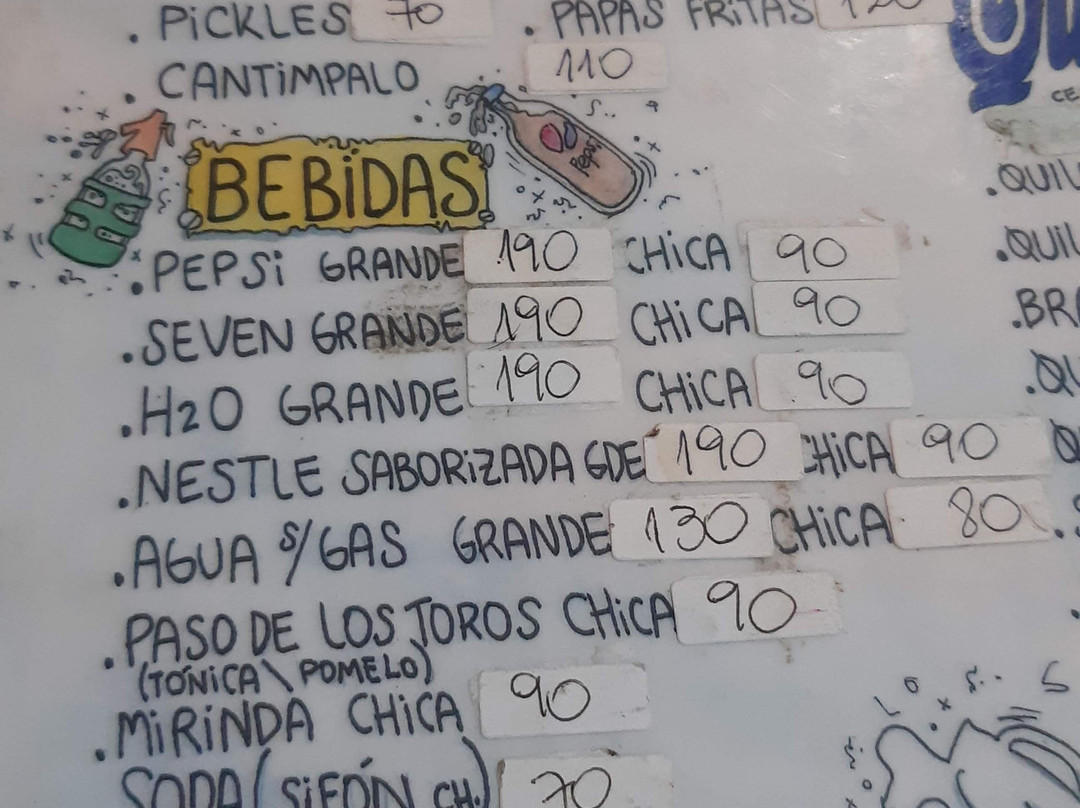 . PICKLES 70 . PAPAS FRiTAS
. CANTiMPALO 110
BEBiDAS
Pepsi
. PEPSi GRANDE 190 CHiCA 90
. SEVEN GRANDE 190 CHiCA 90
. H2O GRANDE 190 CHiCA 90
. NESTLE SABORiZADA GDE 190 CHiCA 90
. AGUA S/GAS GRANDE 130 CHiCA 80
. PASO DE LOS TOROS CHiCA 90
(TÓNiCA \ POMELO)
. MiRiNDA CHiCA 90
SODA (SiFÓN CH.) 70